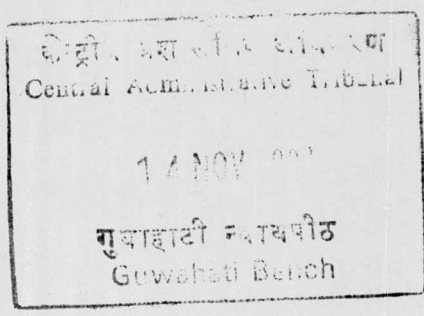 केन्द्रीय प्रशासनिक अधिकरण
Central Administrative Tribunal
14 NOV
गुवाहाटी न्यायपीठ
Guwahati Bench